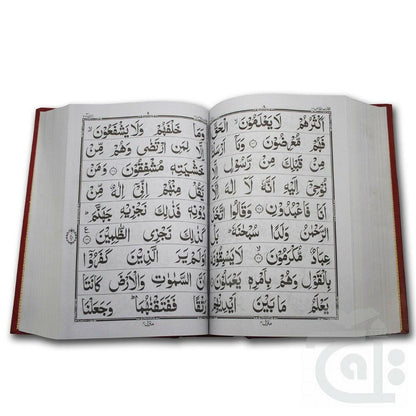 اَكْثَرُهُمْ لَا يَعْلَمُوْنَ ۙ الْحَقَّ
فَهُمْ مُّعْرِضُوْنَ ۝ وَمَاۤ اَرْسَلْنَا
مِنْ قَبْلِكَ مِنْ رَّسُوْلٍ اِلَّا
نُوْحِيْۤ اِلَيْهِ اَنَّهٗ لَاۤ اِلٰهَ اِلَّاۤ
اَنَا فَاعْبُدُوْنِ ۝ وَقَالُوا اتَّخَذَ
الرَّحْمٰنُ وَلَدًا سُبْحٰنَهٗ ؕ بَلْ
عِبَادٌ مُّكْرَمُوْنَ ۝ لَا يَسْبِقُوْنَهٗ
بِالْقَوْلِ وَهُمْ بِاَمْرِهٖ يَعْمَلُوْنَ ۝
يَعْلَمُ مَا بَيْنَ اَيْدِيْهِمْ
وَمَا خَلْفَهُمْ وَلَا يَشْفَعُوْنَ ۙ
اِلَّا لِمَنِ ارْتَضٰى وَهُمْ مِّنْ
خَشْيَتِهٖ مُشْفِقُوْنَ ۝ وَمَنْ
يَّقُلْ مِنْهُمْ اِنِّيْۤ اِلٰهٌ مِّنْ
دُوْنِهٖ فَذٰلِكَ نَجْزِيْهِ جَهَنَّمَ ؕ
كَذٰلِكَ نَجْزِي الظّٰلِمِيْنَ ۝
اَوَلَمْ يَرَ الَّذِيْنَ كَفَرُوْۤا
اَنَّ السَّمٰوٰتِ وَالْاَرْضَ كَانَتَا
رَتْقًا فَفَتَقْنٰهُمَا ؕ وَجَعَلْنَا